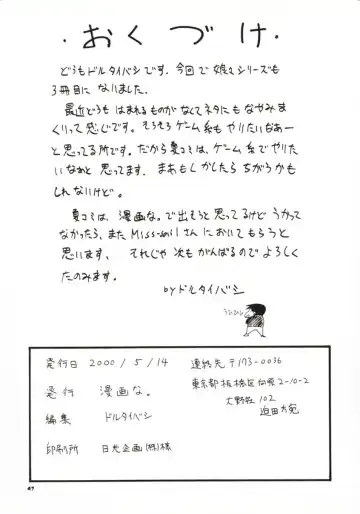 ・おくづけ・
どうもドルタイバシです。今回で娘々シリーズも
3冊目になりました。
最近どうも はまれるものがなくてネタにもなやみま
くりって感じです。そろそろゲーム系も やりたいなあー
と思ってる所です。だから夏コミは、ゲーム系でやりた
いなぁと 思ってます。まあもしかしたら ちがうかも
しれないけど。
夏コミは、漫画な。で出そうと思ってるけど うかって
なかったら、また Missilさんにおいてもらうと
思います。 それじゃ 次もがんばるので よろしく
たのみます。
by ドルタイバシ
発行日 2000/5/14
発行 漫画な。
編集 ドルタイバシ
印刷所 日光企画(株)様
連絡先 〒173-0036
東京都板橋区向原2-10-2
大野荘102
迫田方宛
47